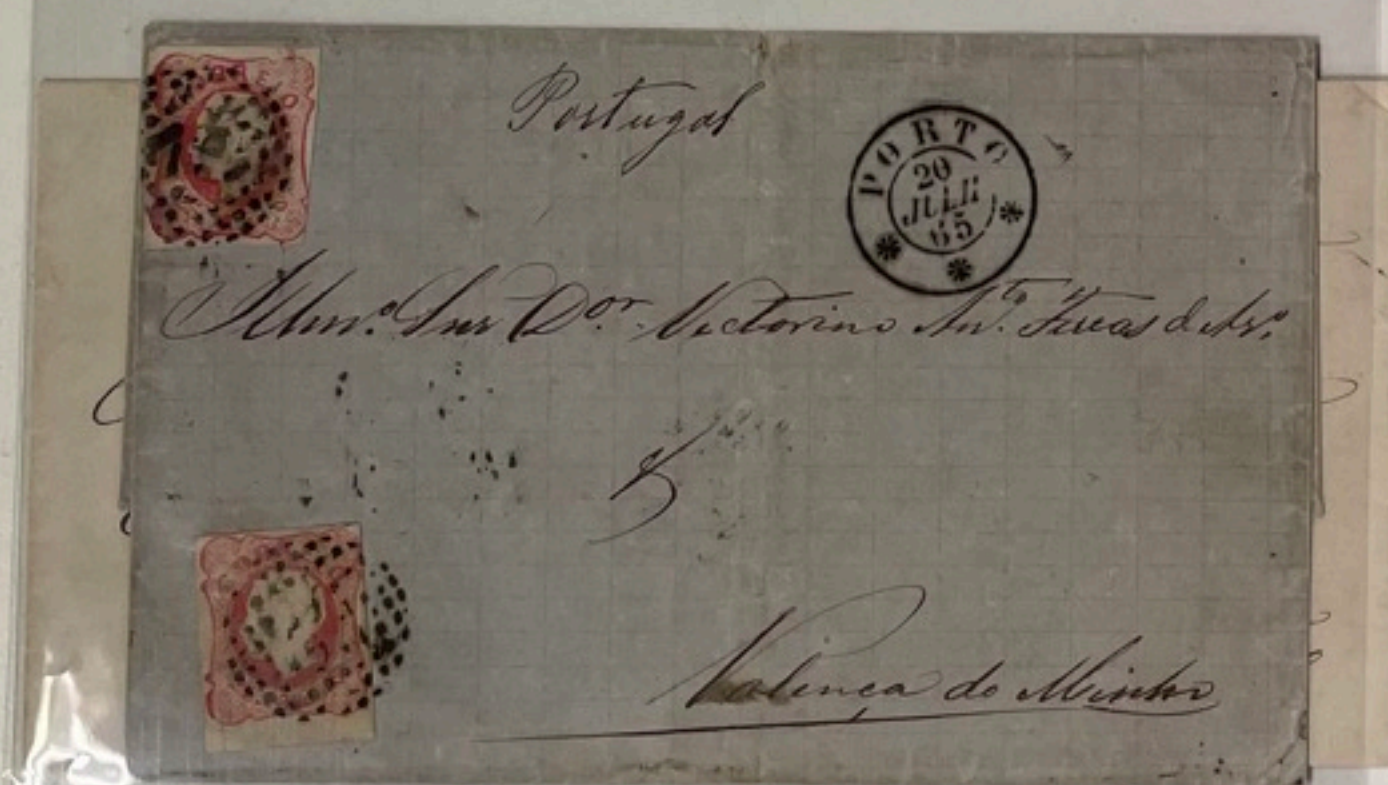 Portugal
PORTO
20
JULH
65
Illmo. Snr. Dor. Victorino Anto.
Valença do Minho